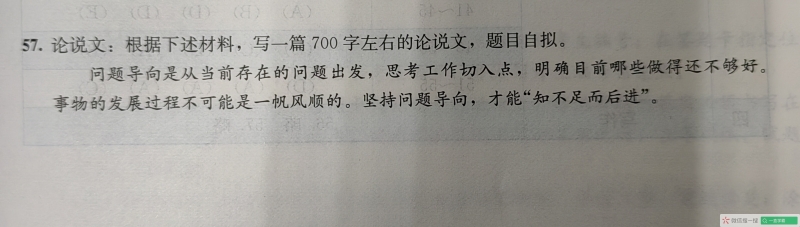 57. 论说文：根据下述材料，写一篇 700 字左右的论说文，题目自拟。
问题导向是从当前存在的问题出发，思考工作切入点，明确目前哪些做得还不够好。
事物的发展过程不可能是一帆风顺的。坚持问题导向，才能“知不足而后进”。